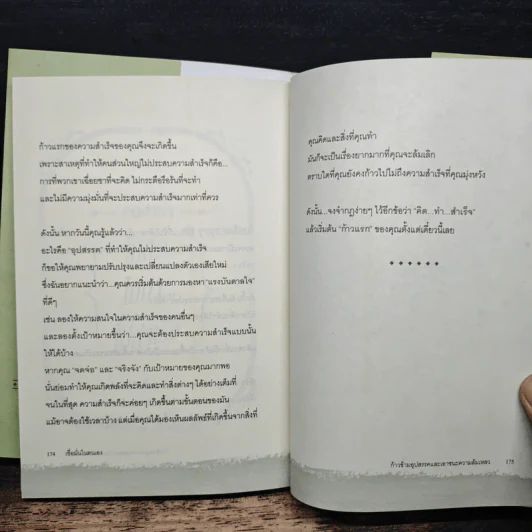 ก้าวแรกของความสำเร็จของคุณจึงจะเกิดขึ้น
เพราะสาเหตุที่ทำให้คนส่วนใหญ่ไม่ประสบความสำเร็จก็คือ...
การที่พวกเขาเฉื่อยชาที่จะคิด ไม่กระตือรือร้นที่จะทำ
และไม่มีความมุ่งมั่นที่จะประสบความสำเร็จมากเท่าที่ควร
ดังนั้น หากวันนี้คุณรู้แล้วว่า...
อะไรคือ "อุปสรรค" ที่ทำให้คุณไม่ประสบความสำเร็จ
ก็ขอให้คุณพยายามปรับปรุงและเปลี่ยนแปลงตัวเองเสียใหม่
ซึ่งฉันอยากแนะนำว่า...คุณควรเริ่มต้นด้วยการมองหา "แรงบันดาลใจ"
ที่ดีๆ
เช่น ลองให้ความสนใจในความสำเร็จของคนอื่นๆ
และลองตั้งเป้าหมายขึ้นว่า...คุณจะต้องประสบความสำเร็จแบบนั้น
ให้ได้บ้าง
หากคุณ "จดจ่อ" และ "จริงจัง" กับเป้าหมายของคุณมากพอ
นั่นย่อมทำให้คุณเกิดพลังที่จะคิดและทำสิ่งต่างๆ ได้อย่างเต็มที่
จนในที่สุด ความสำเร็จก็จะค่อยๆ เกิดขึ้นตามขั้นตอนของมัน
แม้อาจต้องใช้เวลาบ้าง แต่เมื่อคุณได้มองเห็นผลลัพธ์ที่เกิดขึ้นจากสิ่งที่
174 เชื่อมั่นในตนเอง
คุณคิดและสิ่งที่คุณทำ
มันก็จะเป็นเรื่องยากมากที่คุณจะล้มเลิก
ตราบใดที่คุณยังคงก้าวไปไม่ถึงความสำเร็จที่คุณมุ่งหวัง
ดังนั้น...จงจำกฎง่ายๆ ไว้อีกข้อว่า "คิด...ทำ...สำเร็จ"
แล้วเริ่มต้น "ก้าวแรก" ของคุณตั้งแต่เดี๋ยวนี้เลย
ก้าวข้ามอุปสรรคและเอาชนะความล้มเหลว 175